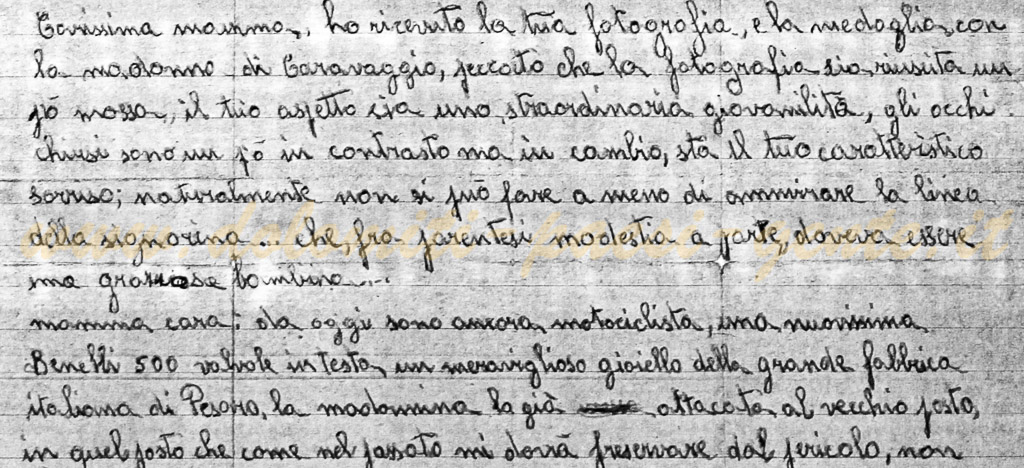 Carissima mamma, ho ricevuto la tua fotografia, e la medaglia con
la madonna di Caravaggio, peccato che la fotografia sia riuscita un
pò mossa, il tuo aspetto era una straordinaria giovanilità, gli occhi
chiusi sono un pò in contrasto ma in cambio, stà il tuo caratteristico
sorriso; naturalmente non si può fare a meno di ammirare la linea
della signorina... che, fra parentesi modestia a parte, doveva essere
una graziosa bambina....
mamma cara: da oggi sono ancora motociclista, una nuovissima
Benelli 500 valvole in testa, un meraviglioso gioiello della grande fabbrica
italiana di Pesaro, la madonnina la già attacata al vecchio posto,
in quel posto che come nel passato mi dovrà preservare dal pericolo, non